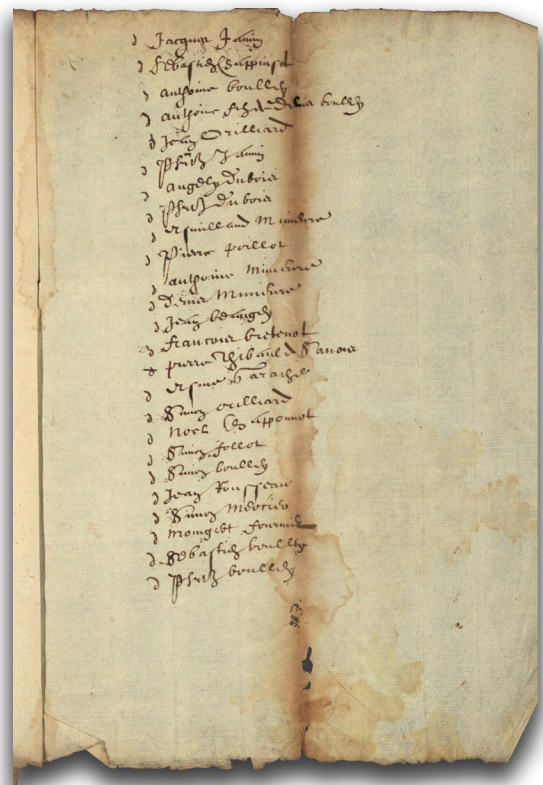 Jacques Janin
Sebastie Chappuset
anthoine boulley
anthoine filz de Denis boulley
Jean Orilliard
Phlz Janin
angely Dubois
Phlz Dubois
Esmilland Munière
Pierre poillot
anthoine Munière
Denis Munière
Jean beaugey
francois bretenot
pierre Thibault
Esme
Simon orilliard
Noel Chapponnot
Simon follot
Simon boulley
Jean Rousseau
Simon Mercier
Mongeot fournier
Sebastie boulley
Phlz boulley